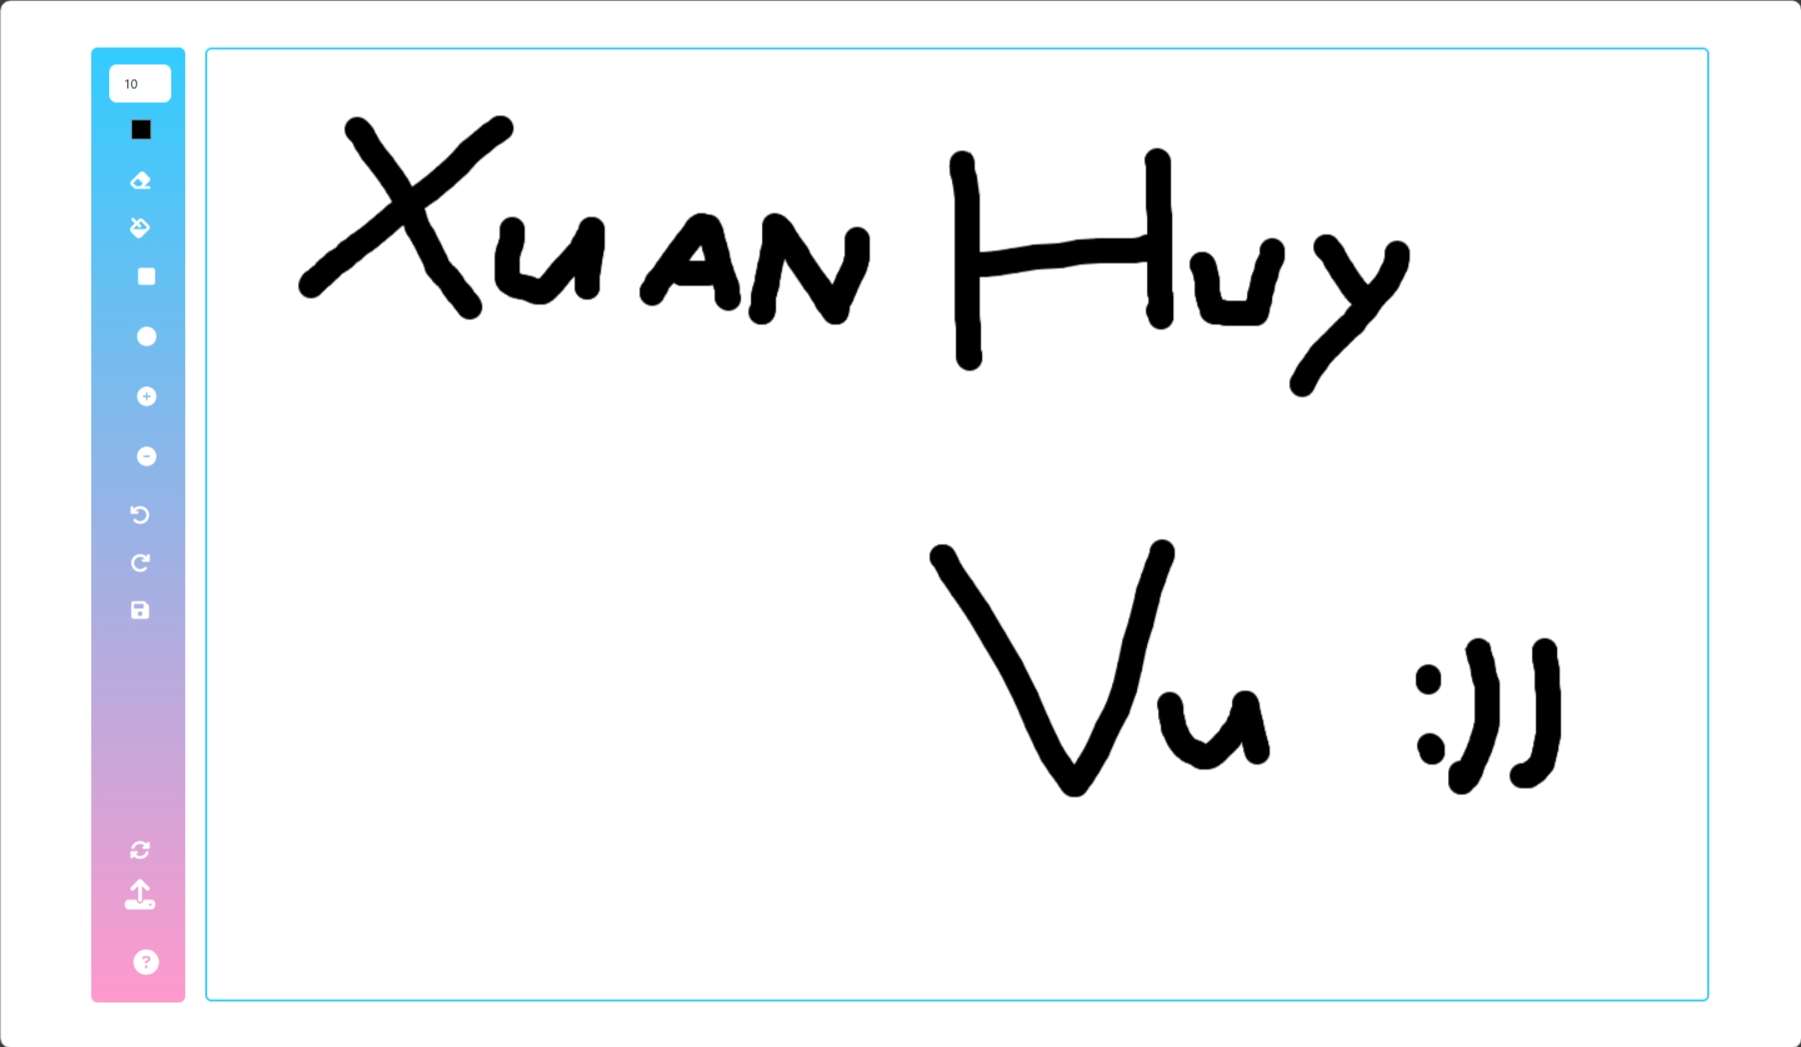 10
XuAN Huy
Vu :))